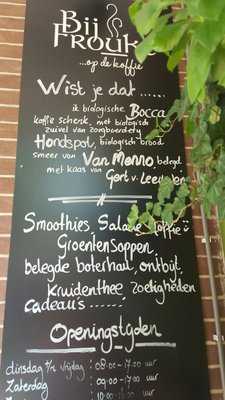 Bij
Frouk
...op de koffie
Wist je dat ......
ik biologische Bocca
koffie schenk, met biologisch
zuivel van zorgboerderij
Hondspol, biologisch brood
smeer van Van Menno belegd
met kaas van Gert v. Leeuwen
Smoothies, Salade, Koffie
Groentensoppen,
belegde boterham, ontbijt,
Kruidenthee, Zoetigheden
cadeau's ......!
Openingstijden
dinsdag t/m vrijdag : 08.00 - 17.00 uur
Zaterdag : 09.00 - 17.00 uur
Zondag : 10.00 uur